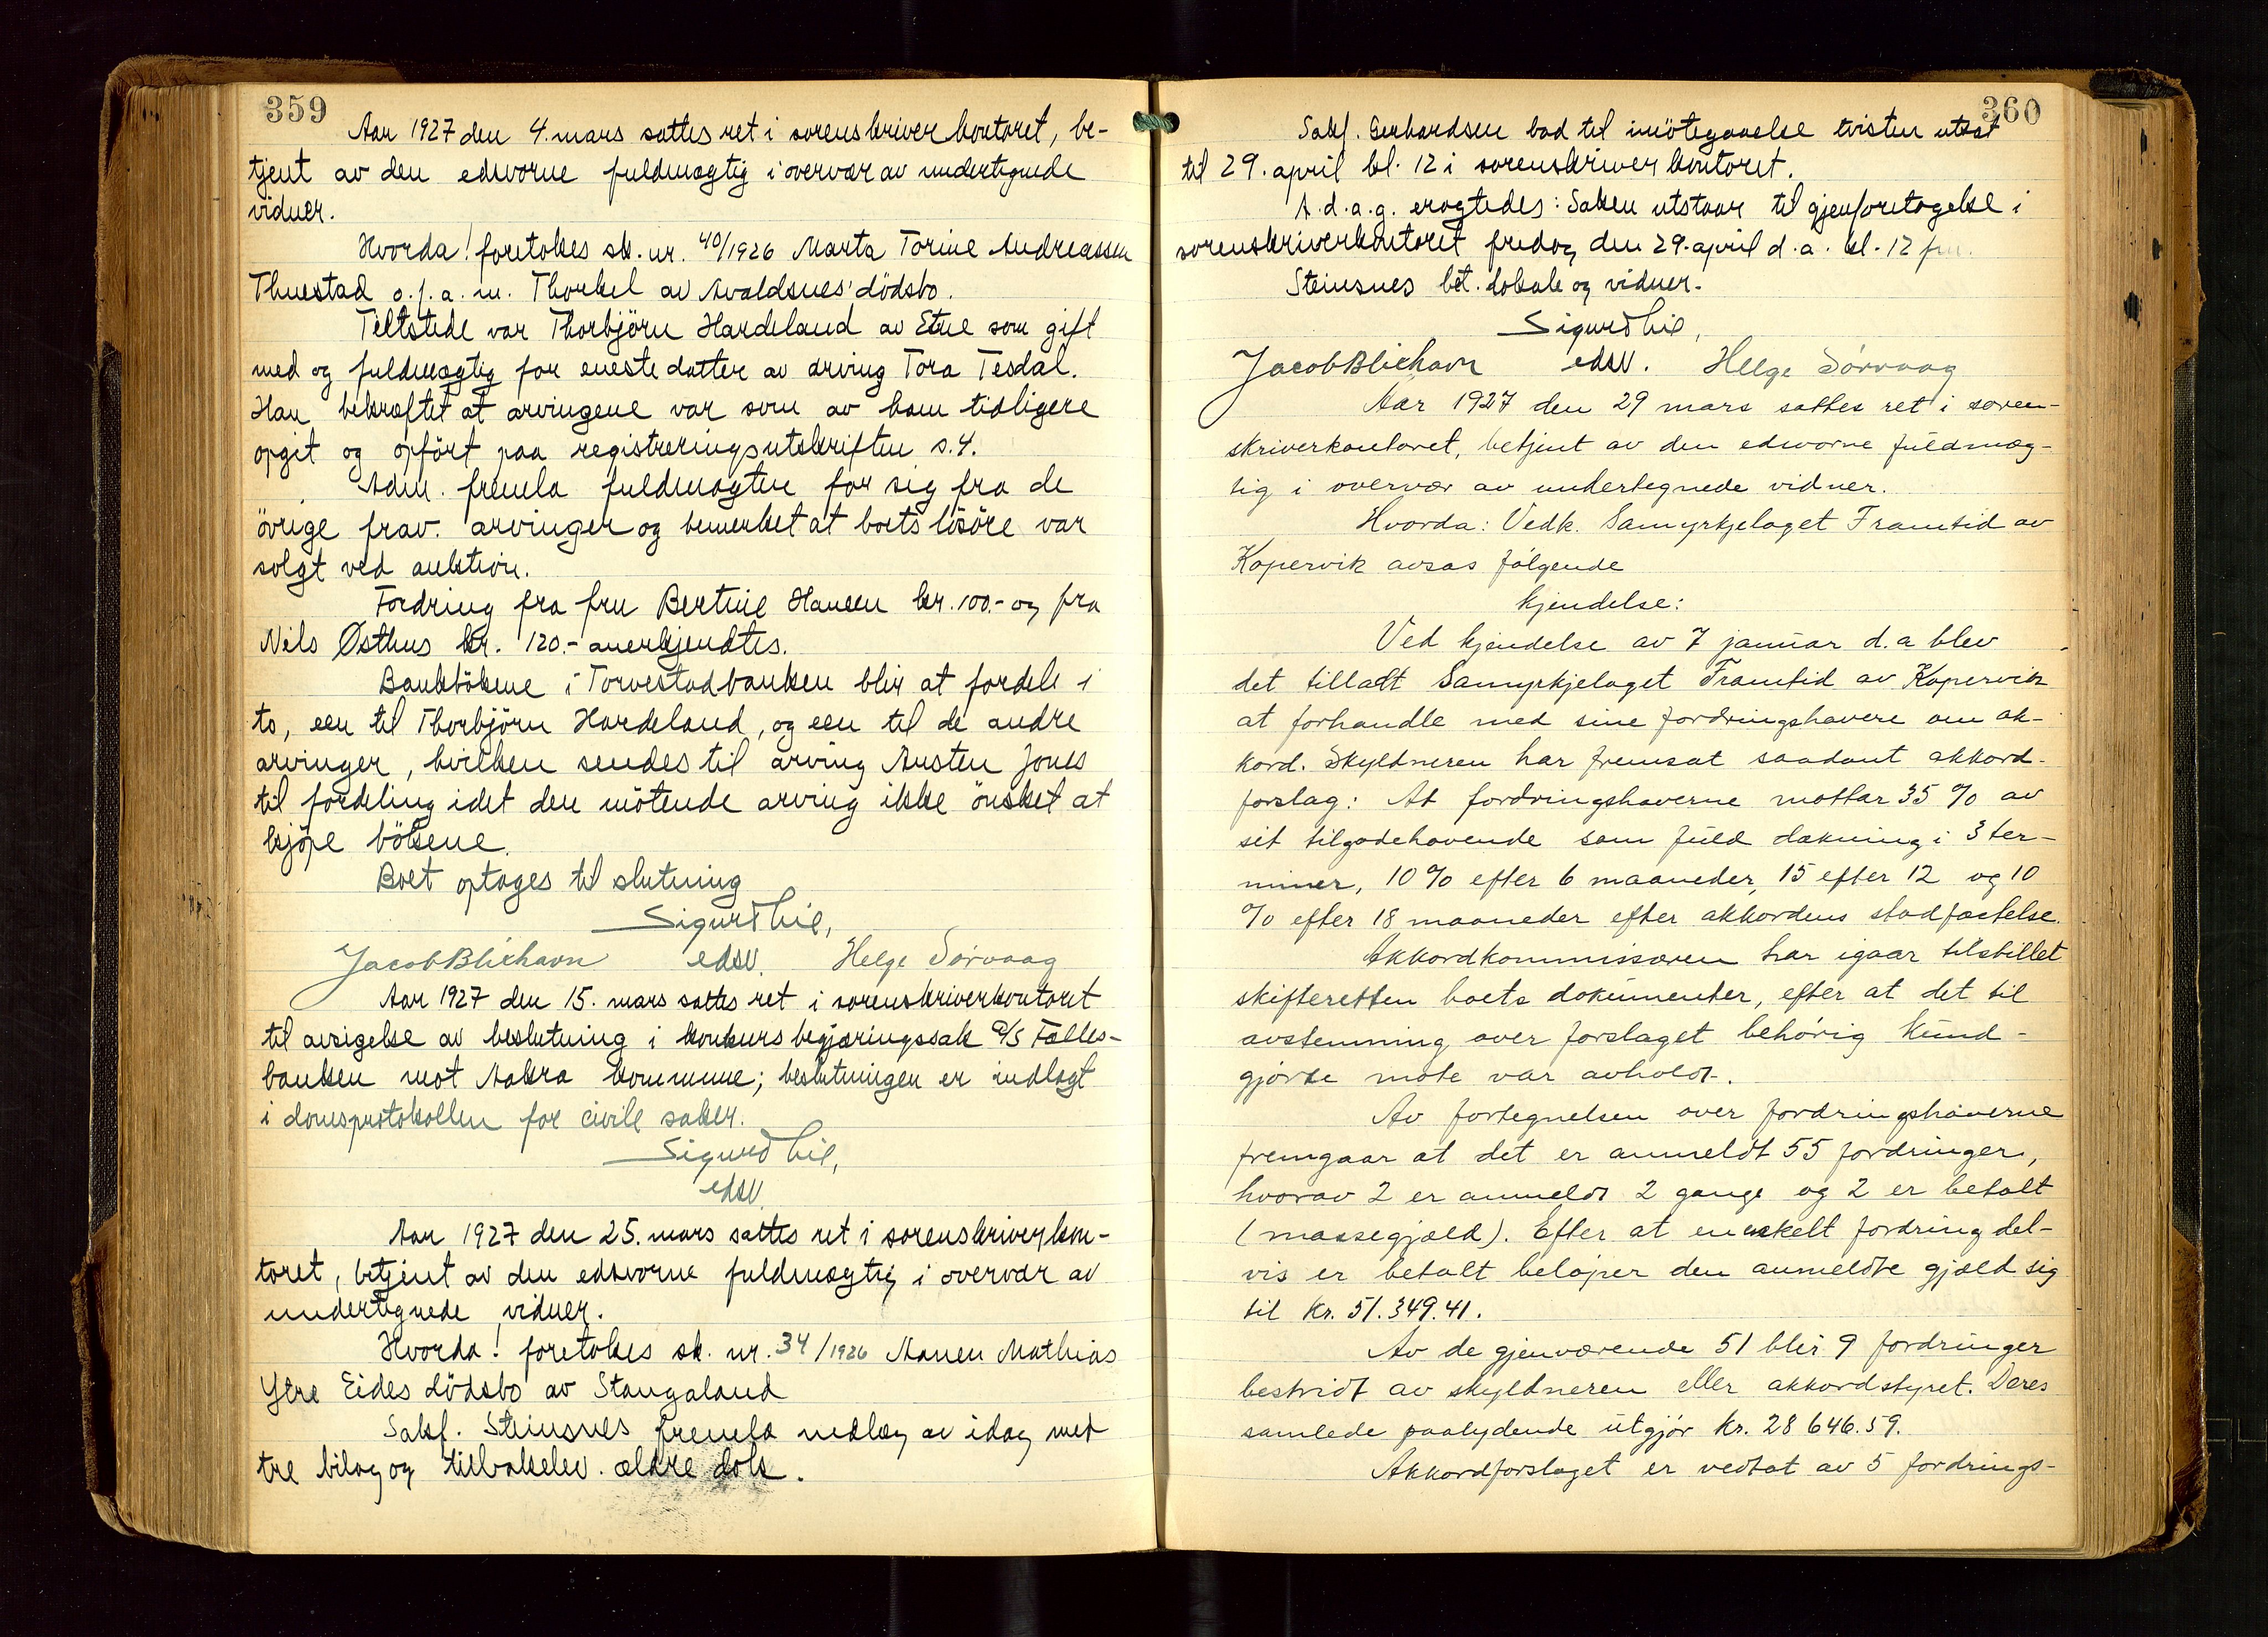 359
Aar 1927 den 4. mars sattes ret i sorenskriverkontoret, be-
tjent av den edsvorne fuldmægtig i overvær av undertegnede
vidner.
Hvorda! foretokes sk. nr. 40/1926 Marta Torine Andreassen
Thuestad o.f.a.m. Thorkel av Avaldsnes' dödsbo.
Tilstede var Thorbjörn Hardeland av Etne som gift
med og fuldmægtig for eneste datter av arving Tora Tesdal.
Han bekræftet at arvingene var som av ham tidligere
opgit og opfört paa registreringsutskriften s. 4.
Adm. fremla fuldmagter for sig fra de
övrige frav. arvinger og bemerket at boets lösöre var
solgt ved auktion.
Fordring fra fru Bertine Hansen kr. 100.- og fra
Nils Østhus kr. 120.- anerkjendtes.
Bankbökene i Torvestadbanken blir at fordele i
to, een til Thorbjörn Hardeland, og een til de andre
arvinger, hvilken sendes til arving Austen Jones
til fordeling idet den mötende arving ikke önsket at
kjöpe bökene.
Boet optages til slutning
Sigurd Lie,
Jacob Blikhavn edsv. Helge Sörvaag
Aar 1927 den 15. mars sattes ret i sorenskriverkontoret
til avsigelse av beslutning i konkursbegjæringssak A/S Fælles-
banken mot Aakra kommune; beslutningen er indlagt
i domsprotokollen for civile saker.
Sigurd Lie,
edsv.
Aar 1927 den 25. mars sattes ret i sorenskriverkon-
toret, betjent av den edsvorne fuldmægtig i overvær av
undertegnede vidner.
Hvorda! foretokes sk. nr. 34/1926 Aanen Mathias
Ytre Eides dödsbo av Stangaland
Sakf. Steinsnes fremla indlæg av idag med
tre bilag og tilbakelev. ældre dok.
360
Sakf. Gerhardsen bad til imötegaaelse tvisten utsat
til 29. april kl. 12 i sorenskriverkontoret.
A.d.a.g. eragtedes: Saken utstaar til gjenforetagelse i
sorenskriverkontoret fredag den 29. april d.a. kl. 12 fm.
Steinsnes bet. lokale og vidner.
Sigurd Lie,
Jacob Blikhavn edsv. Helge Sörvaag
Aar 1927 den 29 mars sattes ret i soren-
skriverkontoret, betjent av den edsvorne fuldmæg-
tig i overvær av undertegnede vidner.
Hvorda: Vedk. Samyrkjelaget Framtid av
Kopervik avsas følgende
kjendelse:
Ved kjendelse av 7 januar d.a blev
det tillatt Samyrkjelaget Framtid av Kopervik
at forhandle med sine fordringshavere om ak-
kord. Skyldneren har fremsat saadant akkord-
forslag: At fordringshaverne mottar 35 % av
sit tilgodehavende som fuld dækning i 3 ter-
miner, 10 % efter 6 maaneder, 15 efter 12 og 10
% efter 18 maaneder efter akkordens stadfæstelse.
Akkordkommissæren har igaar tilstillet
skifteretten boets dokumenter, efter at det til
avstemning over forslaget behørig kund-
gjorte møte var avholdt.
Av fortegnelsen over fordringshaverne
fremgaar at det er anmeldt 55 fordringer,
hvorav 2 er anmeldt 2 gange og 2 er betalt
(massegjæld). Efter at en enkelt fordring del-
vis er betalt beløper den anmeldte gjæld sig
til kr. 51.349.41.
Av de gjenværende 51 blir 9 fordringer
bestridt av skyldneren eller akkordstyret. Deres
samlede paalydende utgjør kr. 28 646.59.
Akkordforslaget er vedtat av 5 fordrings-